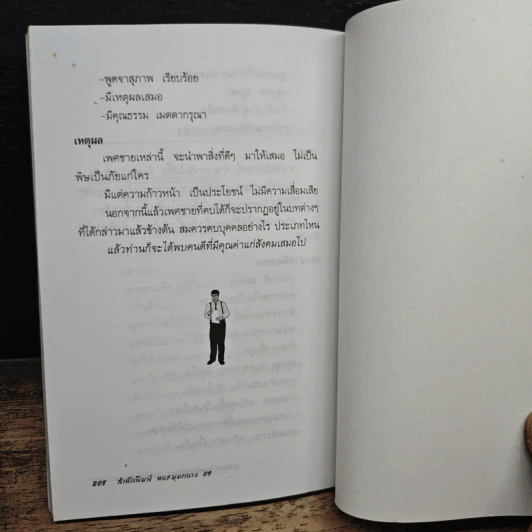 -พูดจาสุภาพ เรียบร้อย
-มีเหตุผลเสมอ
-มีคุณธรรม เมตตากรุณา
เหตุผล
เพศชายเหล่านี้ จะนำพาสิ่งที่ดีๆ มาให้เสมอ ไม่เป็น
พิษเป็นภัยแก่ใคร
มีแต่ความก้าวหน้า เป็นประโยชน์ ไม่มีความเสื่อมเสีย
นอกจากนี้แล้วเพศชายที่คบได้ก็จะปรากฏอยู่ในบทต่างๆ
ที่ได้กล่าวมาแล้วข้างต้น สมควรคบบุคคลอย่างไร ประเภทไหน
แล้วท่านก็จะได้พบคนดีที่มีคุณค่าแก่สังคมเสมอไป
208 สำนักพิมพ์ หอสมุดกลาง 09